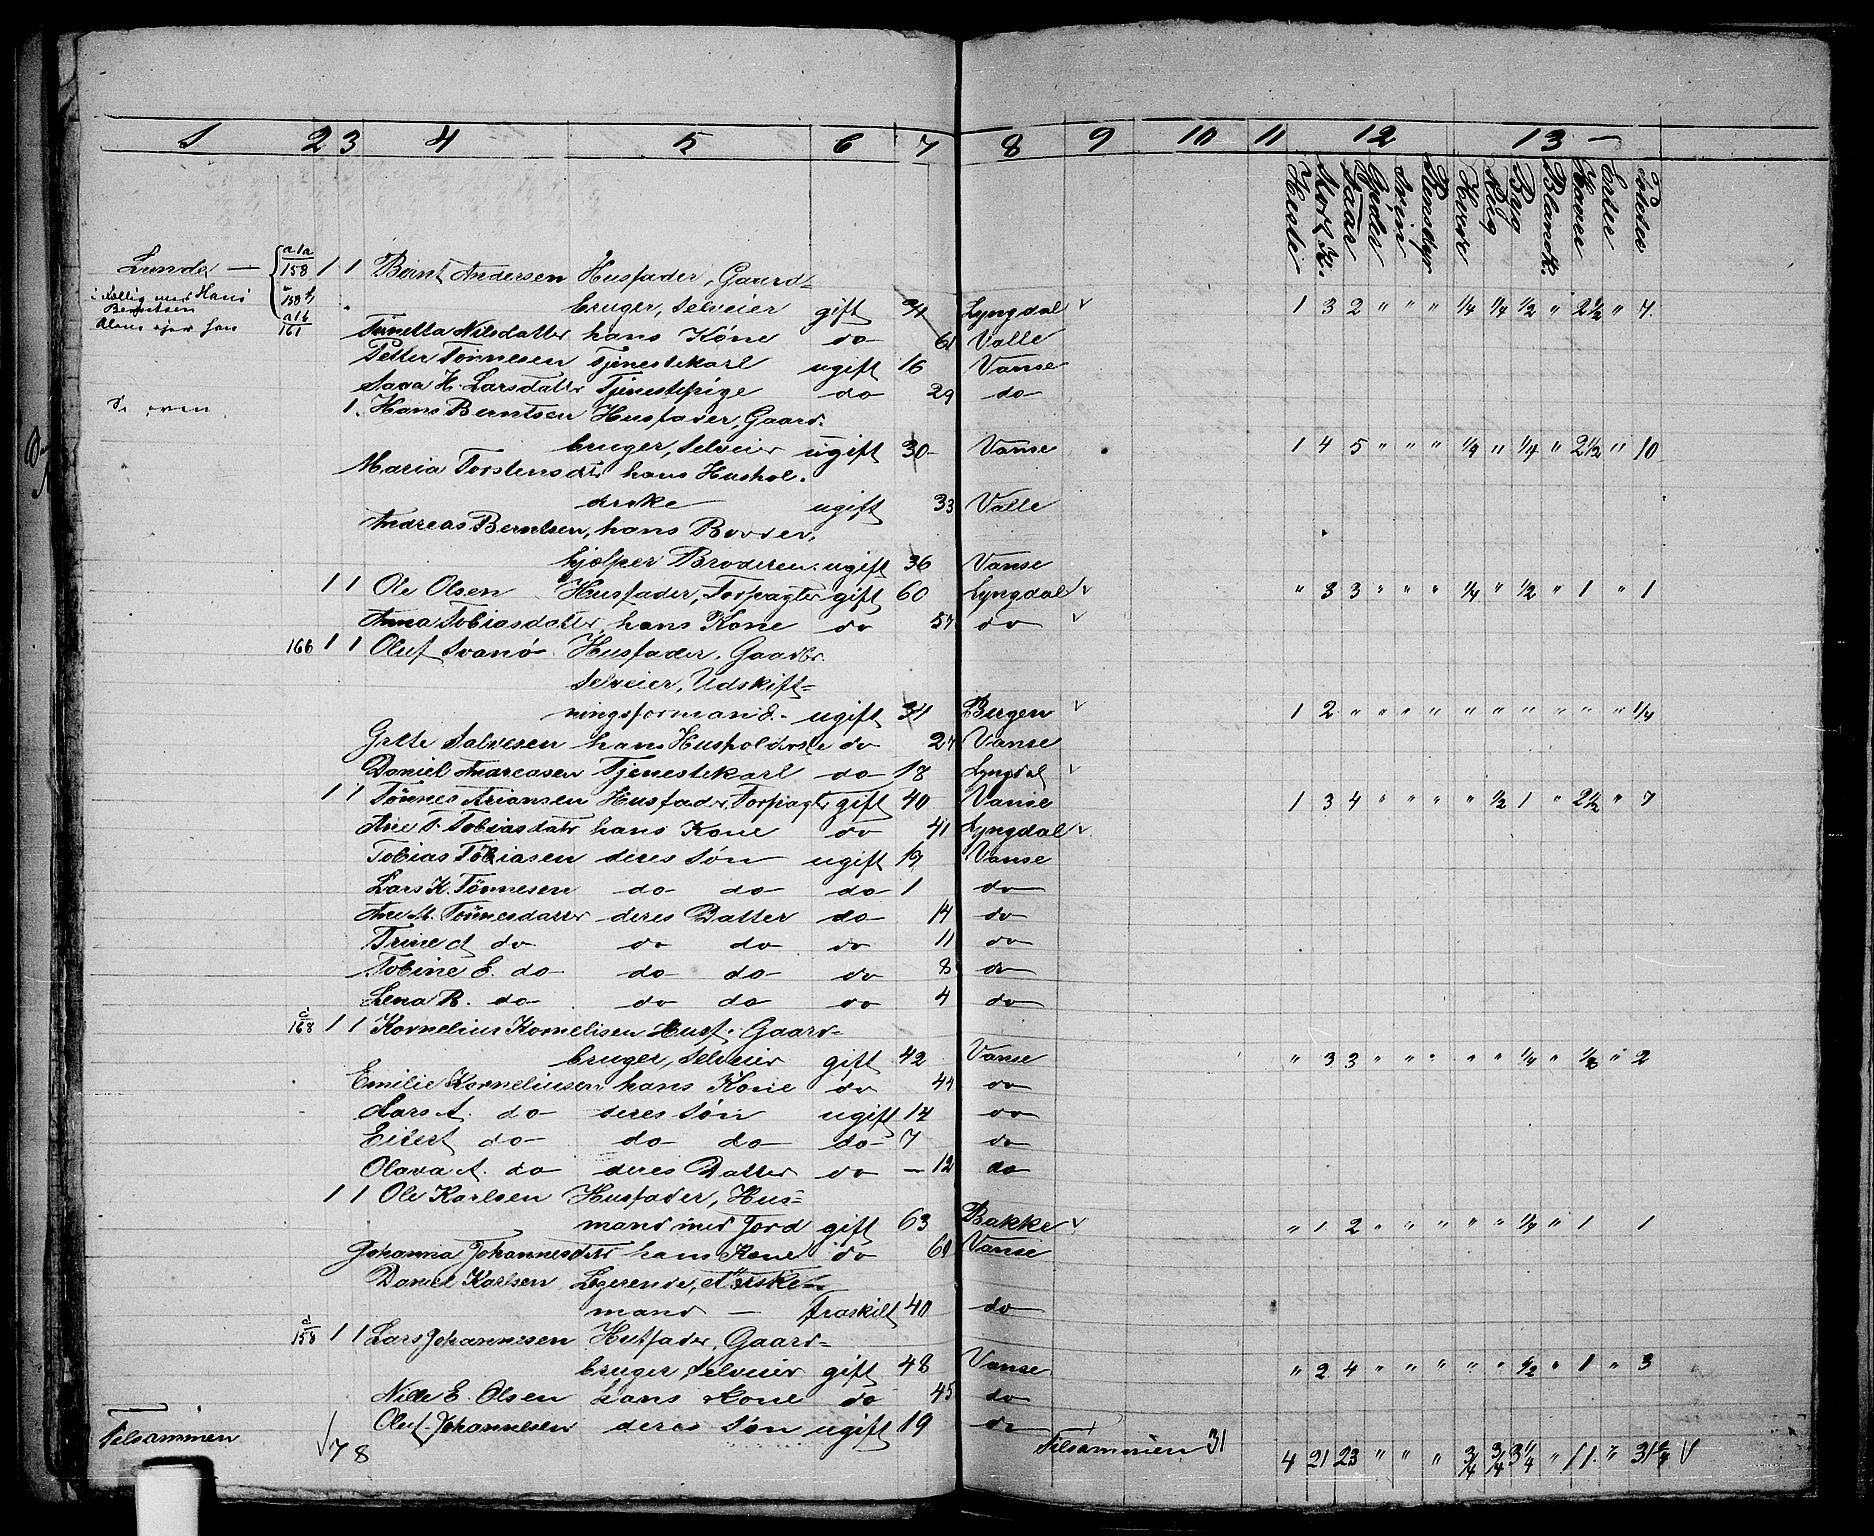 1 2 3 4 5 6 7 8 9 10 11 12 13
Heste Stort K. Faar Gjeder Svin Rensdyr Hvede Rug Byg Blandk. Havre Erter Poteter
Lunde — a1a 158 1 1 Bernt Andersen Husfader, Gaard-
i fællig med Hans 158 b
Berntsen bruger, Selveier gift 71 Lyngdal v 1 3 2 " " " 1/4 1/4 1/2 " 2 1/2 " 7
alene ejer han a16 161
Tunetta Nilsdatter hans Kone do 61 Valle
Petter Tønnesen Tjenestekarl ugift 16 Vanse
H. Larsdatter Tjenestepige do 29 do
do oven 1 Hans Berntsen Husfader, Gaard-
bruger, Selveier ugift 30 Vanse 1 4 5 " " " 1/4 " 1/4 " 2 1/2 " 10
Maria Torstensdtr hans Hushol-
derske ugift 33 Valle
Andreas Berntsen, hans Broder,
hjælper Broderen ugift 36 Vanse
1 1 Ole Olsen Husfader, Forpagter gift 60 Lyngdal v " 3 3 " " " 1/4 " 1/2 " 1 " 1
Anna Tobiasdatter hans Kone do 57 do v
166 1 1 Oluf Svanø Husfader, Gaardbr.
Selveier, Udskift-
ningsformand ugift 34 Bergen v 1 2 " " " " " " " " " " 1/4
Grete Salvesen hans Husholderske do 27 Vanse
Daniel Andreasen Tjenestekarl do 18 Lyngdal v
1 1 Tønnes Ariansen Husfader, Forpagter gift 40 Vanse 1 3 4 " " " " 1/2 1 " 2 1/2 " 7
Ane T. Tobiasdatr hans Kone do 41 Lyngdal v
Tobias Tobiasen deres Søn ugift 19 Vanse
Lars K. Tønnesen do do do 1 do
Ane M. Tønnesdatter deres Datter do 14 do
Trine A do do do do 11 do
Tobine E. do do do do 8 do
Lena R. do do do do 4 do
c 168 1 1 Kornelius Kornelisen Husf. Gaard-
bruger, Selveier gift 42 Vanse " 3 3 " " " " " 1/4 " 1/2 " 2
Emilie Korneliusen hans Kone do 44 do
Lars A. do deres Søn ugift 14 do
Eilert do do do do 7 do
Olava A. do deres Datter do — 12 do
1 1 Ole Karlsen Husfader, Hus-
mand med Jord gift 63 Bakke v " 1 2 " " " " " 1/4 " 1 1
Johanna Johannesdtr hans Kone do 61 Vanse
Daniel Karlsen Logerende,
mand — fraskilt 40 do
d 158 1 1 Lars Johannesen Husfader, Gaard-
bruger, Selveier gift 48 Vanse " 2 4 " " " " " 1/2 " 1 " 3
E. Olsen hans Kone do 45 do
Oluf Johannesen deres Søn ugift 19 do
Tilsammen √ 7 8 Tilsammen 31 4 21 23 " " " 3/4 3/4 3 1/4 " 11 " 31 1/4 √